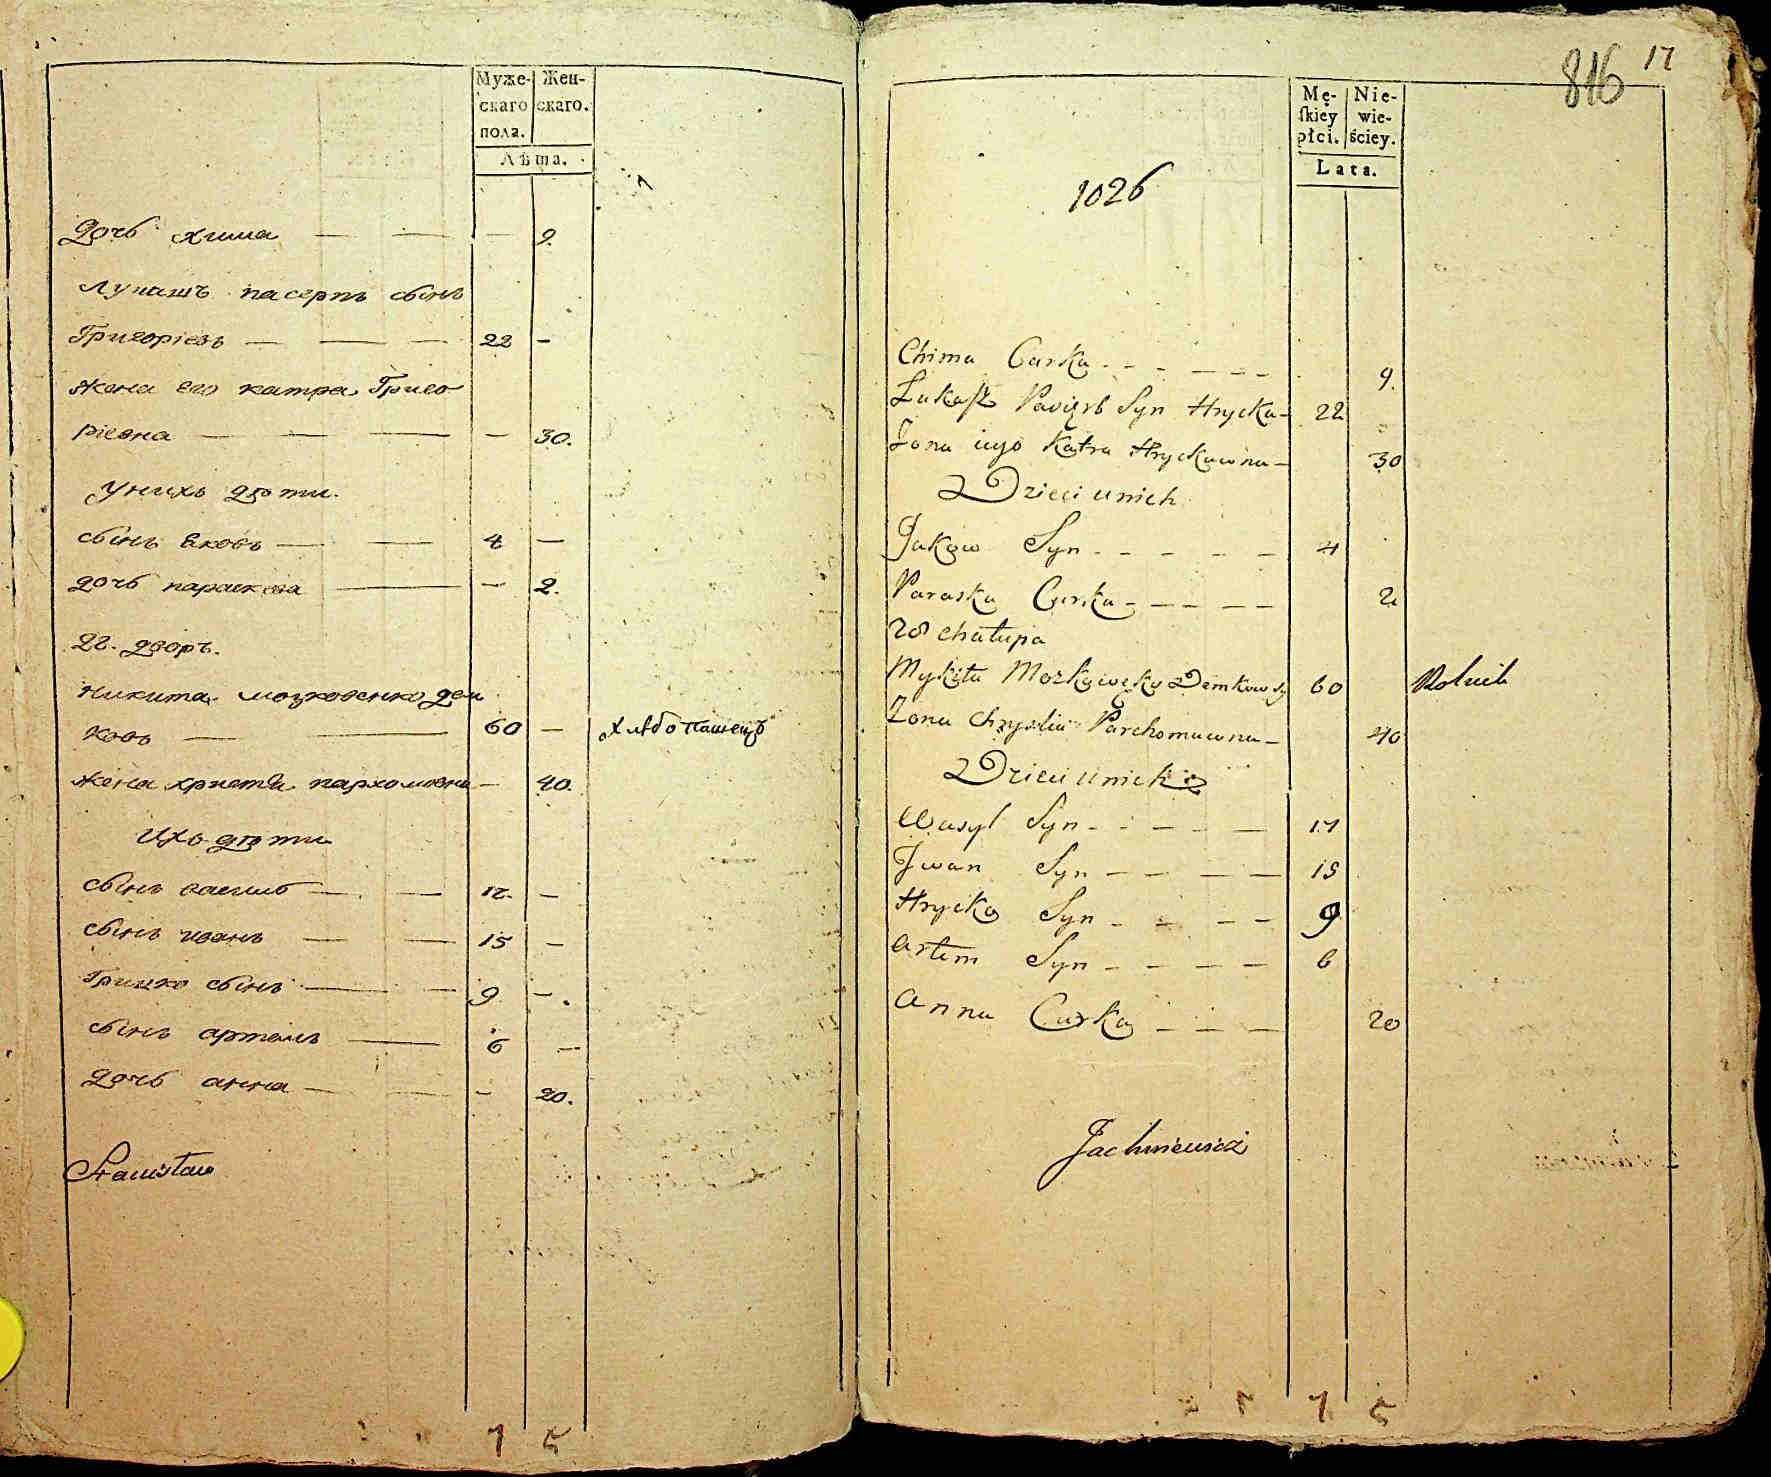 Муже-
скаго
пола.
Жен-
скаго.
Лѣта.
дочь хима — — — 9.
лукашъ пасербъ сынъ
Григоріевъ — — — 22 —
жена его катра Григо
ріевна — — — — 30.
унихъ дѣти.
сынъ яковъ — — 4 —
дочь параскева — — 2.
22. дворъ.
никита мозковенко дем
ковъ — — 60 — хлѣбопашецъ
жена христя пархомовна — 40.
ихъ дѣти
сынъ василь — — 17. —
сынъ иванъ — — 15 —
Грицко сынъ — — 9 —.
сынъ артемъ — 6 —
дочь анна — — — 20.
Stanisław
7 5
816 17
Mę-
skiey
płci.
Nie-
wie-
ściey.
Lata.
1026
Chima Curka - - - - - - 9.
Łukasz Syn Hrycka - 22
Żona iego Katra Hryckowna - 30
Dzieci unich
Jakow Syn - - - - - 4
Paraska Curka - - - - - 2
chałupa
Mykita Mozkowęko Demkow Sy 60 Rolnik
Żona Chrystia Parchomowna - 40
Dzieci unich
Wasyl Syn - - - - 17
Jwan Syn - - - - 15
Hrycko Syn - - - - 9
Artem Syn - - - - 6
Anna Curka - - - 20
Jachniewicz
7 5